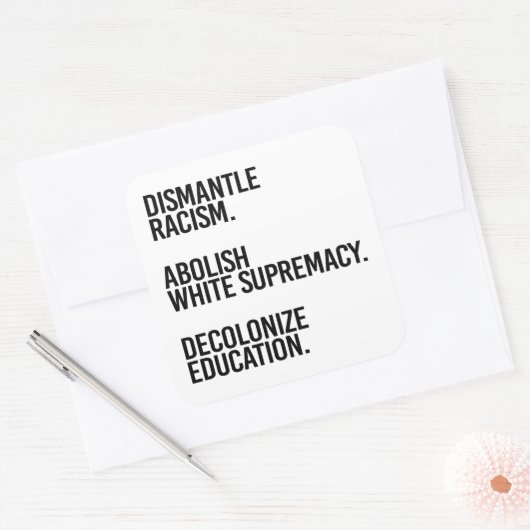 DISMANTLE
RACISM.
ABOLISH
WHITE SUPREMACY.
DECOLONIZE
EDUCATION.